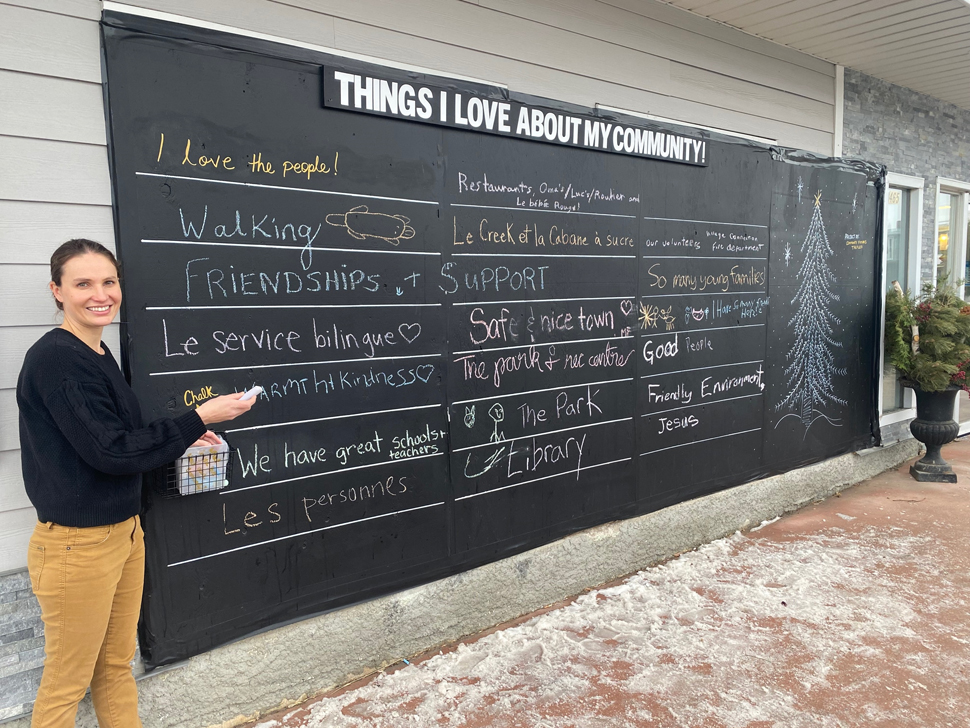 THINGS I LOVE ABOUT MY COMMUNITY!
I love the people!
Walking
FRIENDSHIPS + SUPPORT
Le service bilingue
Chalk
WARMTh + Kindness
We have great schools +
teachers
Les personnes
Restaurants, Oma's/Luc's/Rocker and
Le bébé Rouge!
Le Creek et la Cabane à sucre
Safe & nice town
The park & rec centre
The Park
Library
our volunteers
fire department
So many young Families
Good People
Friendly Environment,
Jesus